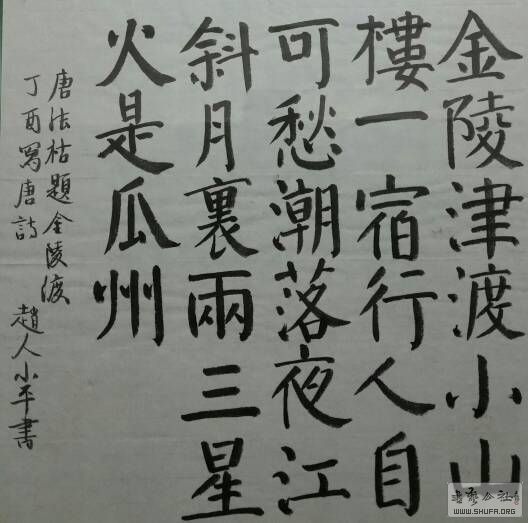 金陵津渡小山
樓一宿行人自
可愁潮落夜江
斜月裏兩三星
火是瓜州
唐法枯題金陵渡
丁酉寫唐詩
趙人小平書
书艺公社
WWW.SHUFA.ORG